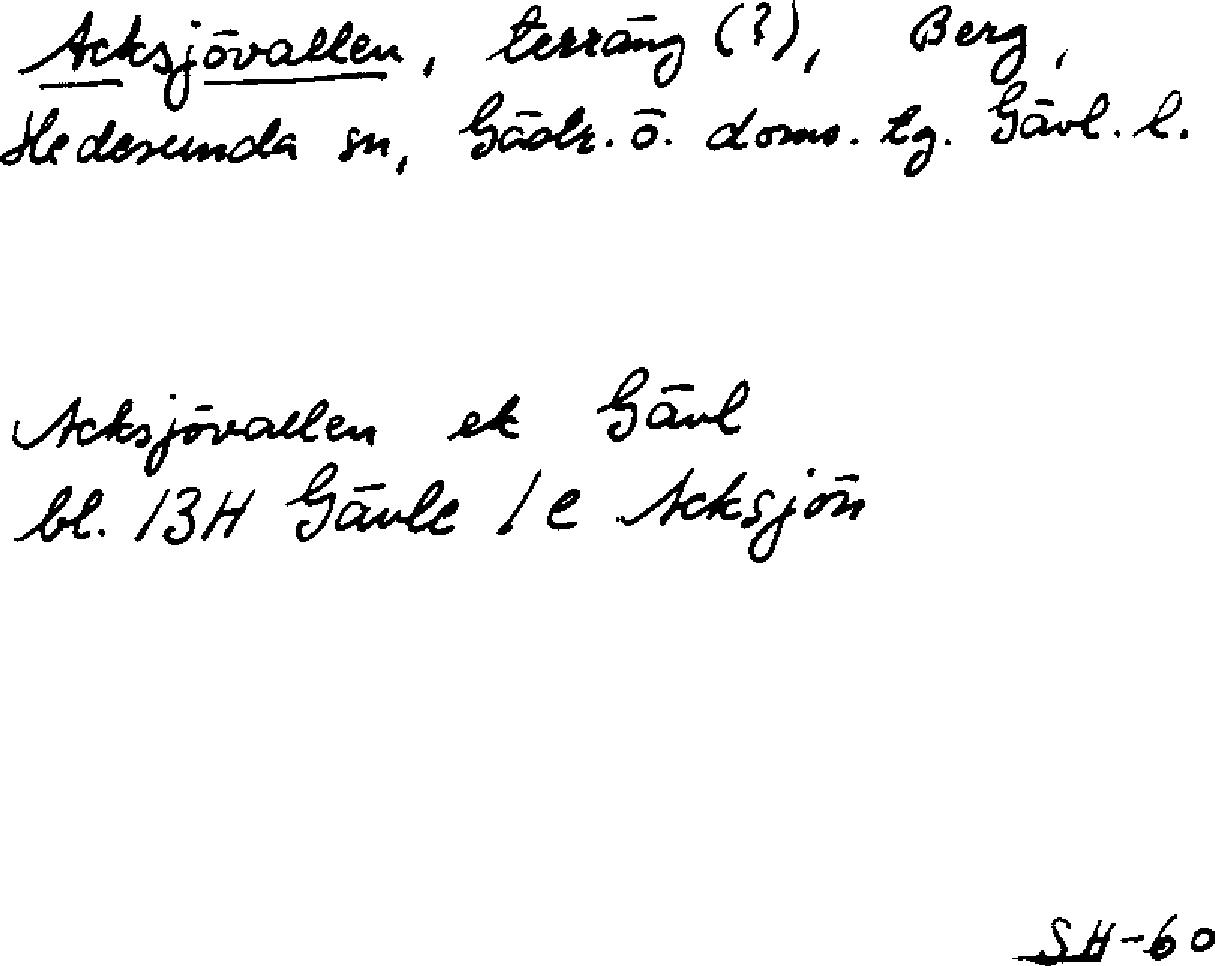 Acksjövallen, terräng (?), Berg,
Hedesunda sn, Gästr. ö. doms. tg. Gävl. l.
Acksjövallen ek Gävl
bl. 13H Gävle 1e Acksjön
SH-60